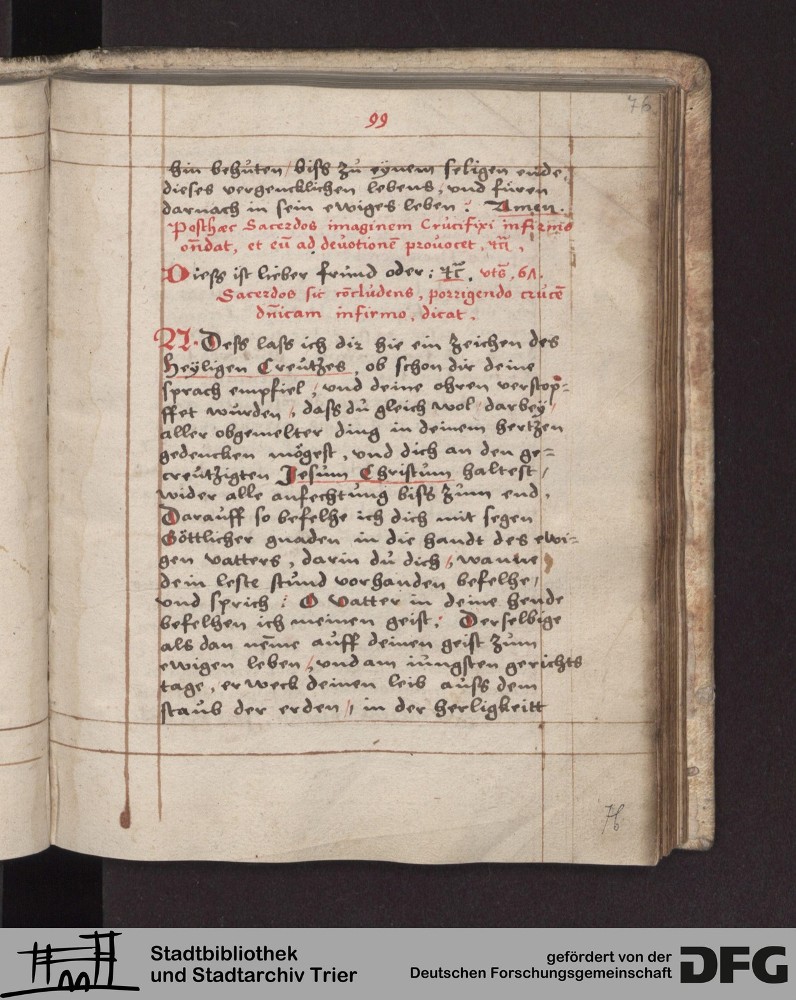 76
99
hin behuten / biss zu eynem seligen ende,
dieses vergencklichen lebens, vnd füren
darnach in sein ewiges leben: Amen.
Posthæc Sacerdos imaginem Crucifixi infirmo
ondat, et eū ad deuotionē prouocet,
Diess ist lieber fründ oder: vts, 61.
Sacerdos sic cōcludens, porrigendo crucē
dn̄icam infirmo, dicat.
N. Dess lass ich dir hie ein zeichen des
Heyligen Creutzes, ob schon dir deine
sprach empfiel, vnd deine ohren verstop=
ffet wurden, dass du gleich wol / darbey /
aller obgemelter ding in deinem hertzen
gedencken mögest, vnd dich an den ge=
creutzigten Jesum Christum haltest /
wider alle anfechtung biss zum end.
Darauff so befelhe ich dich mit segen
Göttlicher gnaden in die handt des ewi=
gen vatters, darin du dich, wanne
dein leste stund vorhanden befelhe /
vnd sprich: O vatter in deine hende
befelhen ich meinen geist: Derselbige
als dan neme auff deinen geist zum
ewigen leben, vnd am iungsten gerichts
tage, erweck deinen leib auss dem
staub der erden, in der herligkeitt
76
Stadtbibliothek
und Stadtarchiv Trier
gefördert von der
Deutschen Forschungsgemeinschaft
DFG